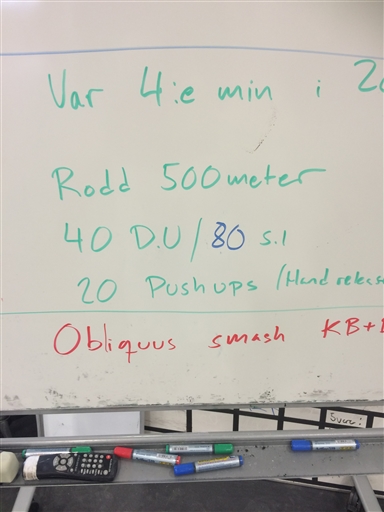 Var 4:e min i
Rodd 500 meter
40 D.U/80 S.I
20 Pushups /Hand release
Obliquus smash KB+